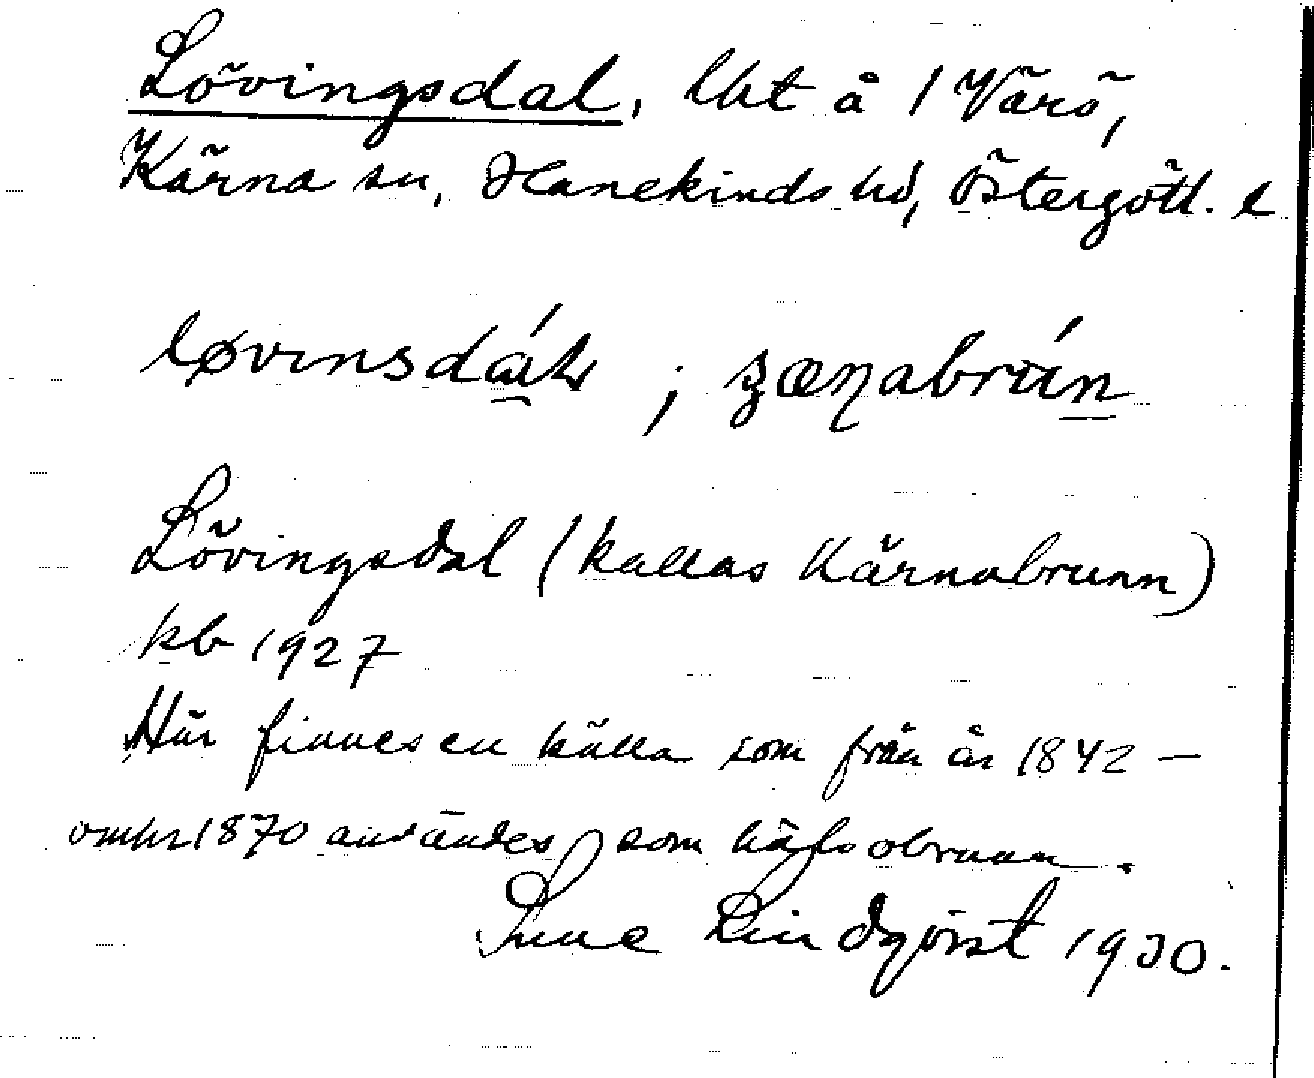 Lövingsdal, lht å 1 Värö,
Kärna sn, Hanekinds hd, Östergötl. l
løvɩnsdálw ; ʒæɳabrún
Lövingsdal (kallas Kärnabrunn)
kb 1927
Här finnes en källa som från år 1842 —
omkr 1870 användes som hälsobrunn.
Sune Lindqvist 1930.